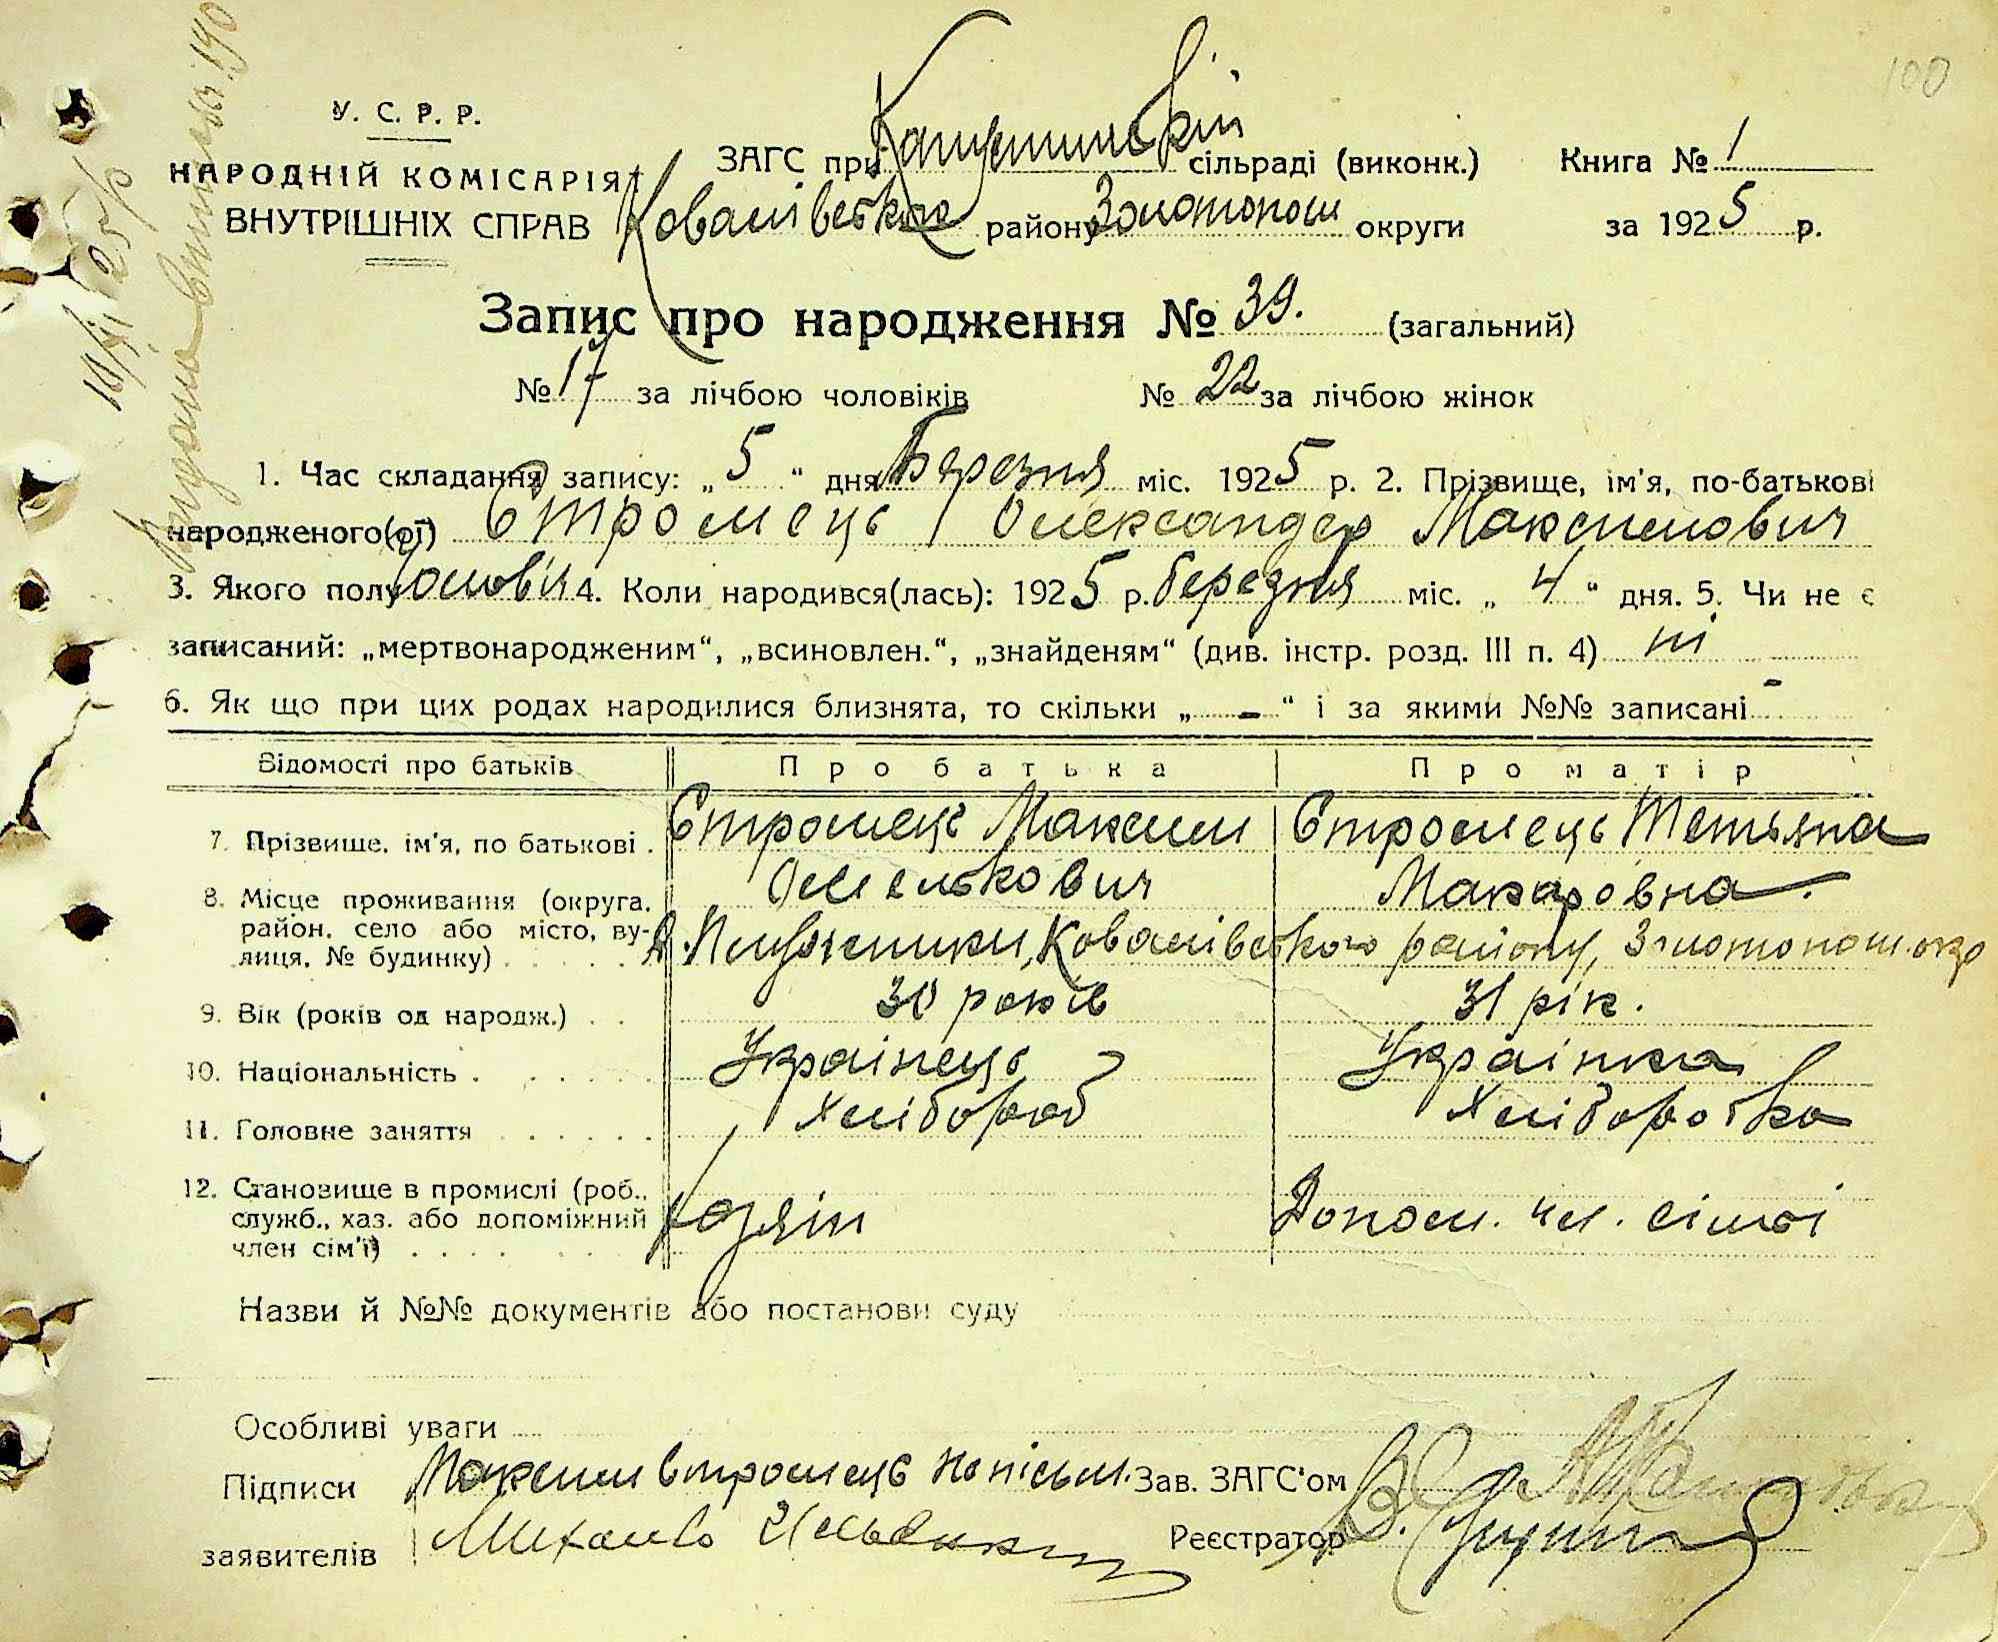 100
У. С. Р. Р.
НАРОДНІЙ КОМІСАРІЯТ
ВНУТРІШНІХ СПРАВ
ЗАГС при Капустинській сільраді (виконк.)
Ковалівського району Золотонош округи
Книга № 1
за 1925 р.
Запис про народження № 39. (загальний)
№ 17 за лічбою чоловіків № 22 за лічбою жінок
1. Час складання запису: „ 5 “ дня Березня міс. 1925 р. 2. Прізвище, ім'я, по-батькові
народженого(ої) Стромець Олександер Максимович
3. Якого полу чолов'ч 4. Коли народився(лась): 1925 р. березня міс. „ 4 “ дня. 5. Чи не є
записаний: „мертвонародженим“, „всиновлен.“, „знайденям“ (див. інстр. розд. III п. 4) ні
6. Як що при цих родах народилися близнята, то скільки „ - “ і за якими №№ записані -
Відомості про батьків Про батька Про матір
7. Прізвище, ім'я, по батькові . Стромець Максим Омелькович Стромець Тетьяна Макаровна.
8. Місце проживання (округа, район, село або місто, вулиця, № будинку) . . . . . Ковалівського району, Золотонош. окр
9. Вік (років од народж.) . . 30 років 31 рік.
10. Національність . . . . . . Українець Українка
11. Головне заняття . . . . . . Хлібороб Хліборобка
12. Становище в промислі (роб., служб., хаз. або допоміжний член сім'ї) . . . . Хозяін Допом. чл. сімьі
Назви й №№ документів або постанови суду
Особливі уваги
Підписи заявителів Максим Стромець неписьм.
Михайло
Зав. ЗАГС'ом
Реєстратор